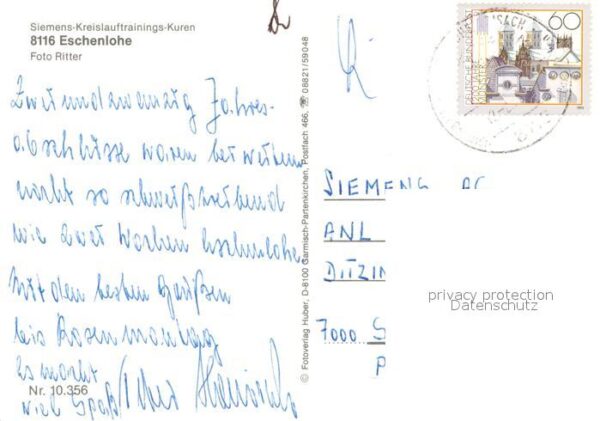 Siemens-Kreislauftrainings-Kuren
8116 Eschenlohe
Foto Ritter
Zweiundzwanzig Jahres-
abschlüsse waren bei weitem
nicht so schweißtreibend
wie zwei Wochen Eschenlohe.
Mit den besten Grüßen
bis Rosenmontag
Es macht
viel Spaß! Ihr
Nr. 10.356
© Fotoverlag Huber, D-8100 Garmisch-Partenkirchen, Postfach 466, ☏ 08821/59048
60
SIEMENS AG
ANL
DITZIN
7000 S
P
privacy protection
Datenschutz